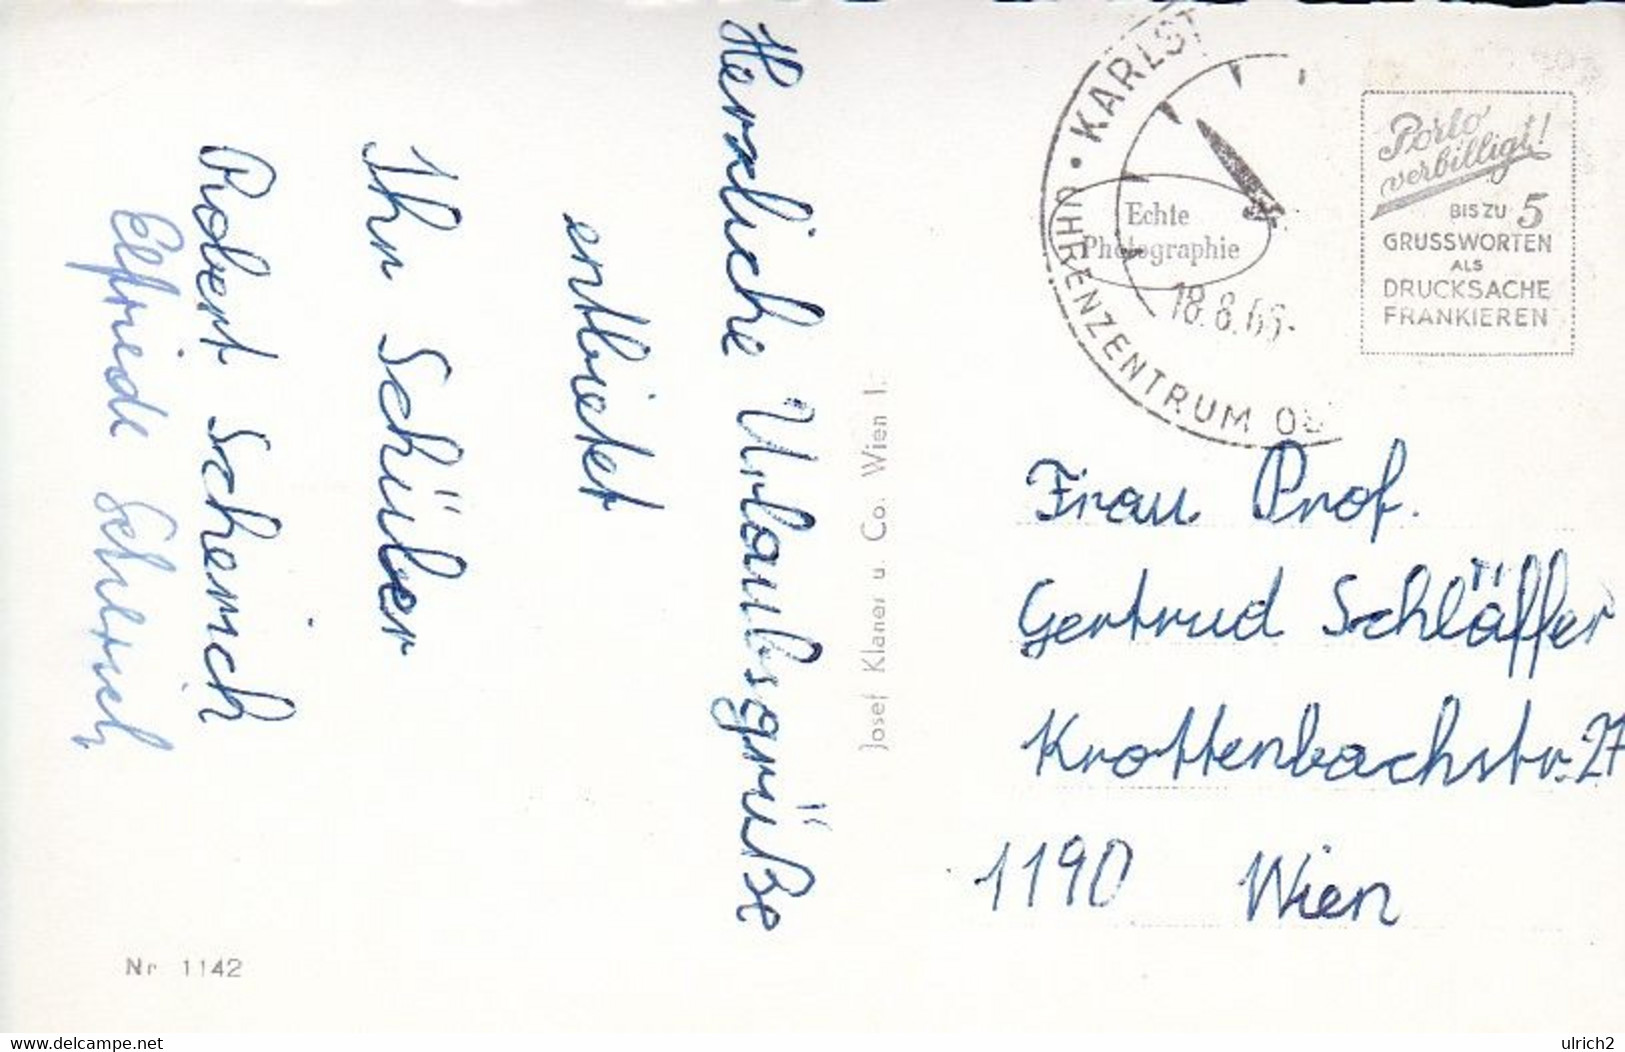 Herzliche Urlaubsgrüße
entbietet
Ihr Schüler
Robert Schemich
Elfriede
Josef Klaner u. Co. Wien I.
Nr 1142
KARLST
UHRENZENTRUM
18.8.66-
Echte
Photographie
Porto
verbilligt!
BIS ZU 5
GRUSSWORTEN
ALS
DRUCKSACHE
FRANKIEREN
Frau Prof.
Gertrud Schläffer
Krottenbachstr. 27
1190 Wien
www.delcampe.net
ulrich2